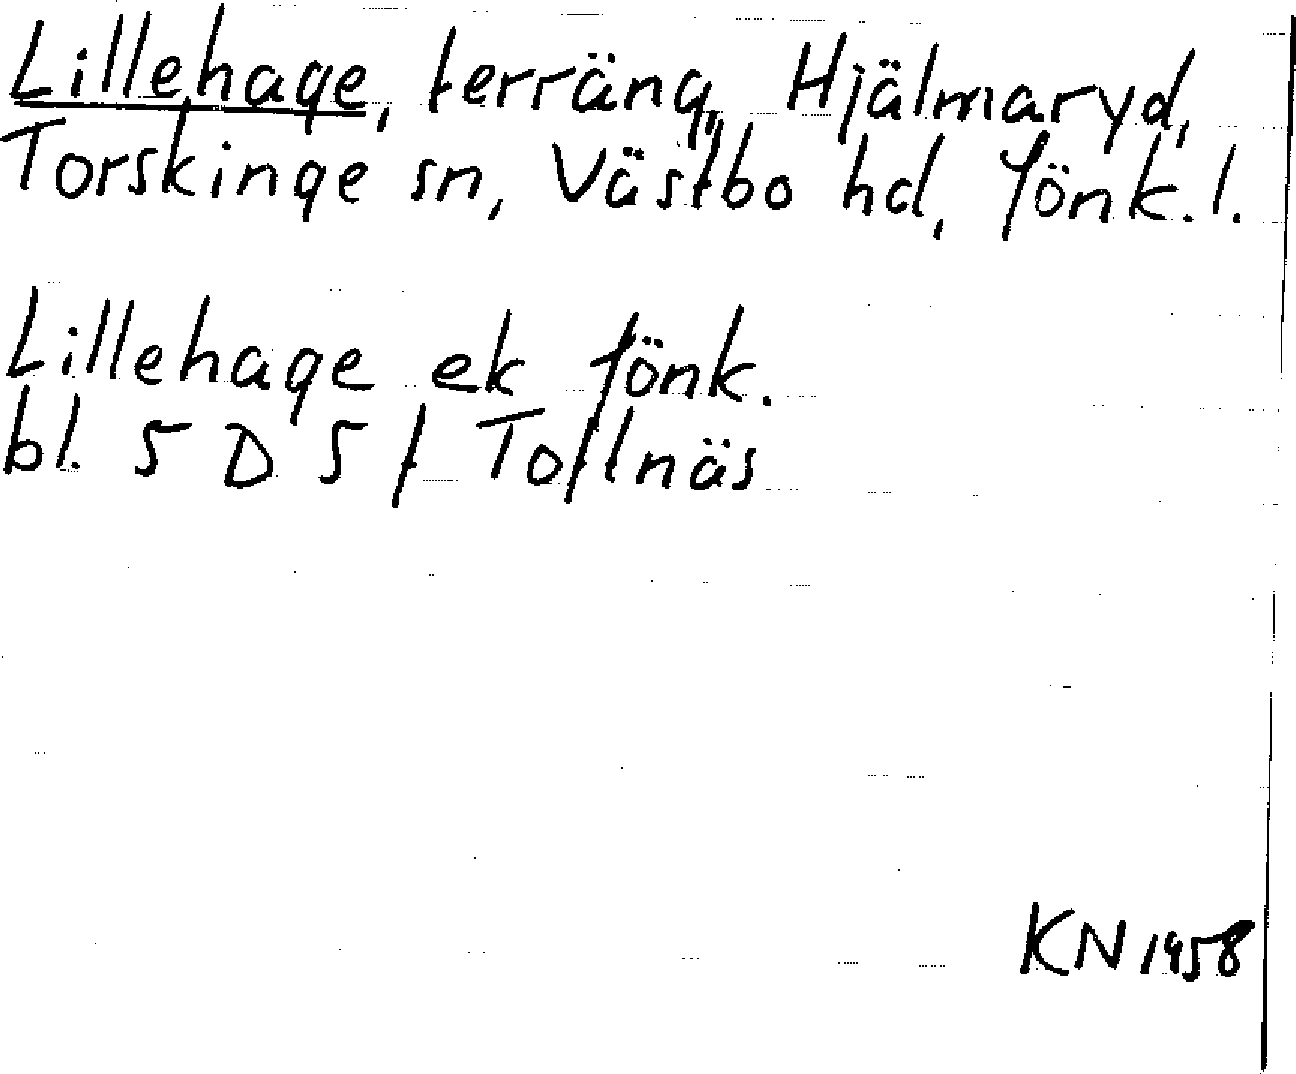 Lillehage, terräng, Hjälmaryd,
Torskinge sn, Västbo hd, Jönk. l.
Lillehage ek Jönk.
bl. 5 D 5 f Toftnäs
KN 1958